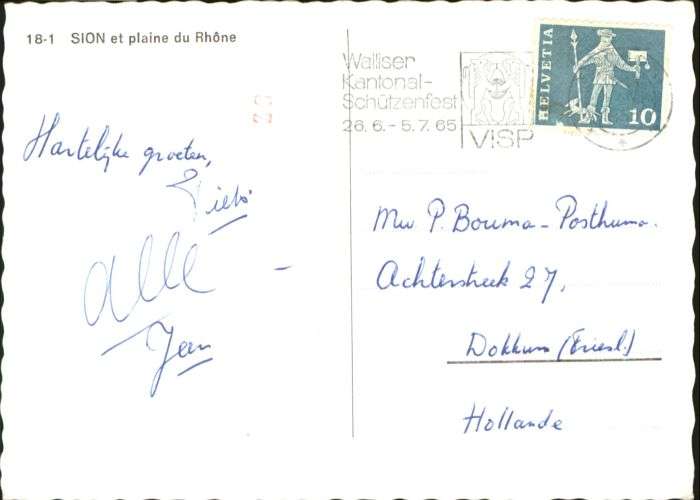 18-1 SION et plaine du Rhône
Hartelijke groeten,
Alle
Jan
Walliser
Kantonal-
Schützenfest
26.6.-5.7.65
VISP
HELVETIA
10
Mw P. Bouma-Posthuma.
Achterstreek 27,
Dokkum (Friesl.)
Hollande